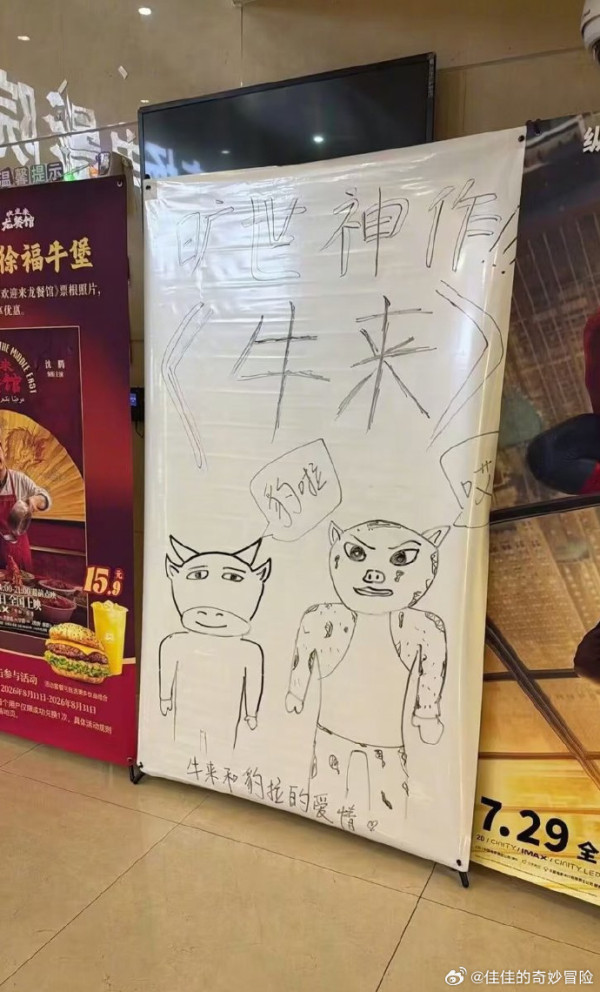 温馨提示
欢迎来
龙餐馆
徐福牛堡
欢迎来龙餐馆》票根照片,
优惠。
THE MIDDLE EAST
沈腾
15.9元
日全国上映
与参与活动
2026年8月11日-2026年8月11日
旷世神作
《牛来》
豹啦
哎
牛来和豹拉的爱情
纵
7.29 全
CINITY/IMAX/CINITY LED
@佳佳的奇妙冒险